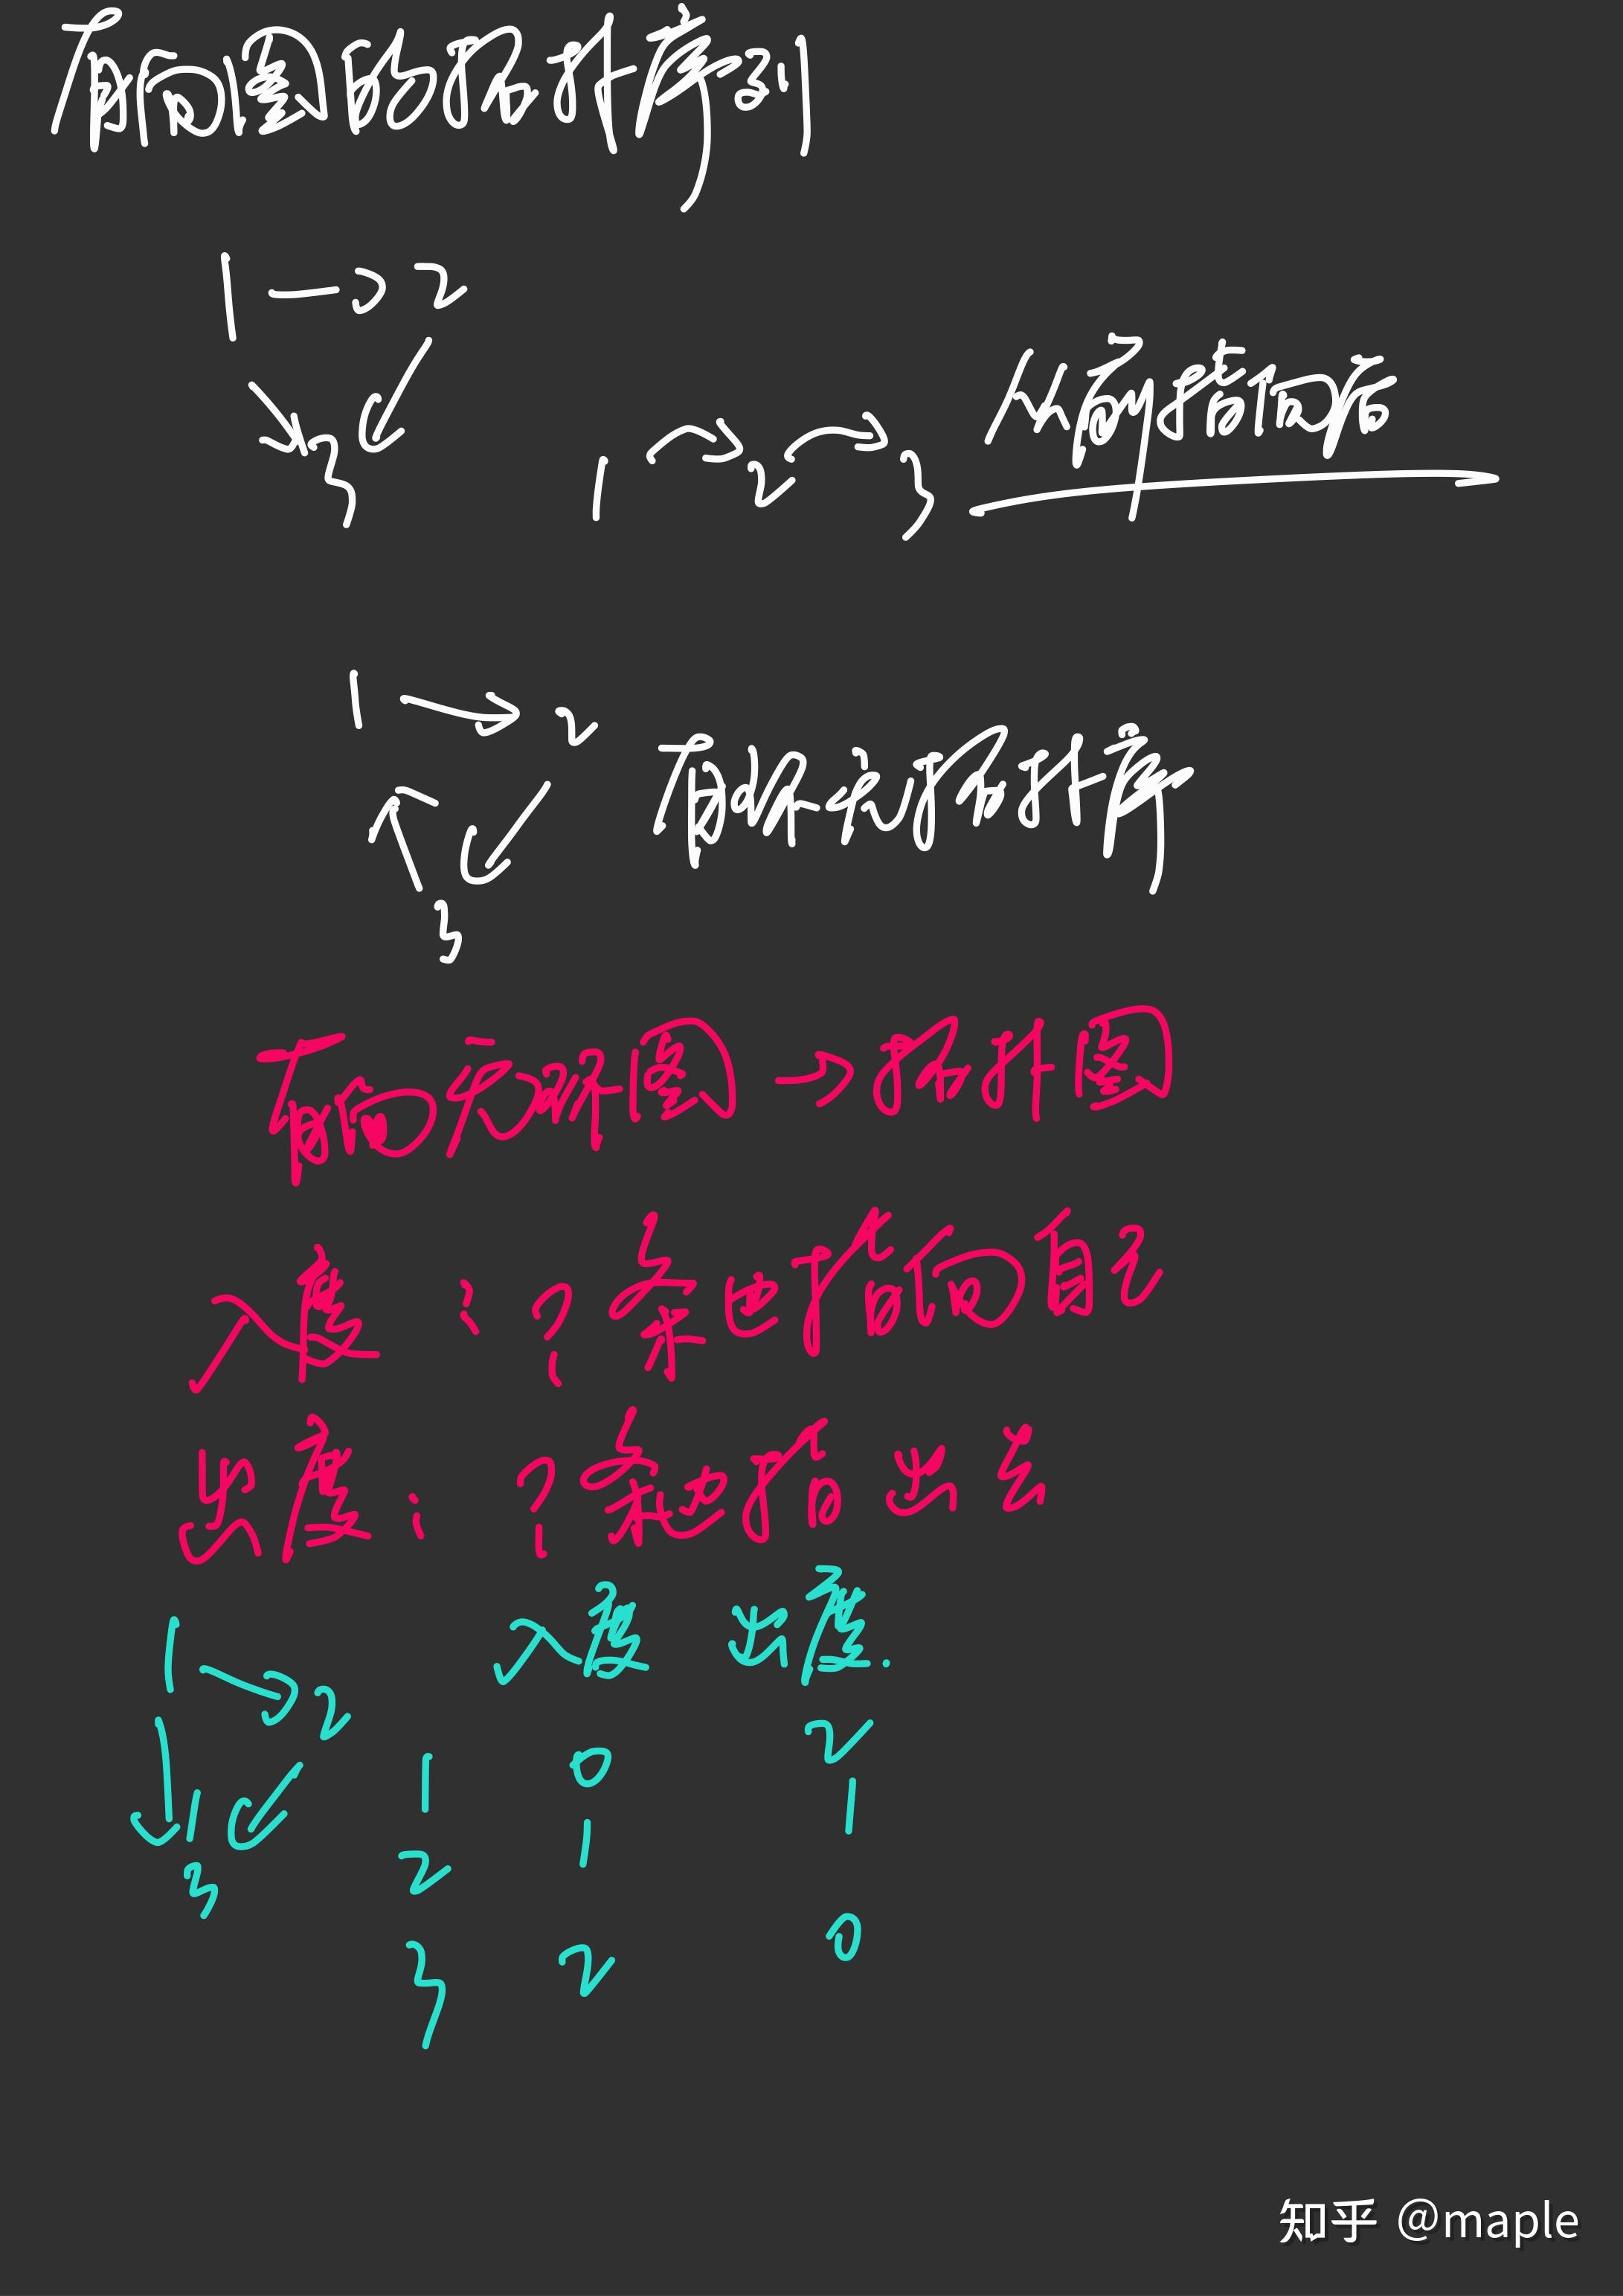 有向图的拓扑序列
1 → 2
3
1 2 3 从前指向后
1 → 2
有环无拓扑序
3
有向无环图 → 拓扑图
入度：几条边指向自己
出度：几条边指出去
1 2 3
入度 出度.
1 0 2
2 1 1
3 2 0
知乎 @maple